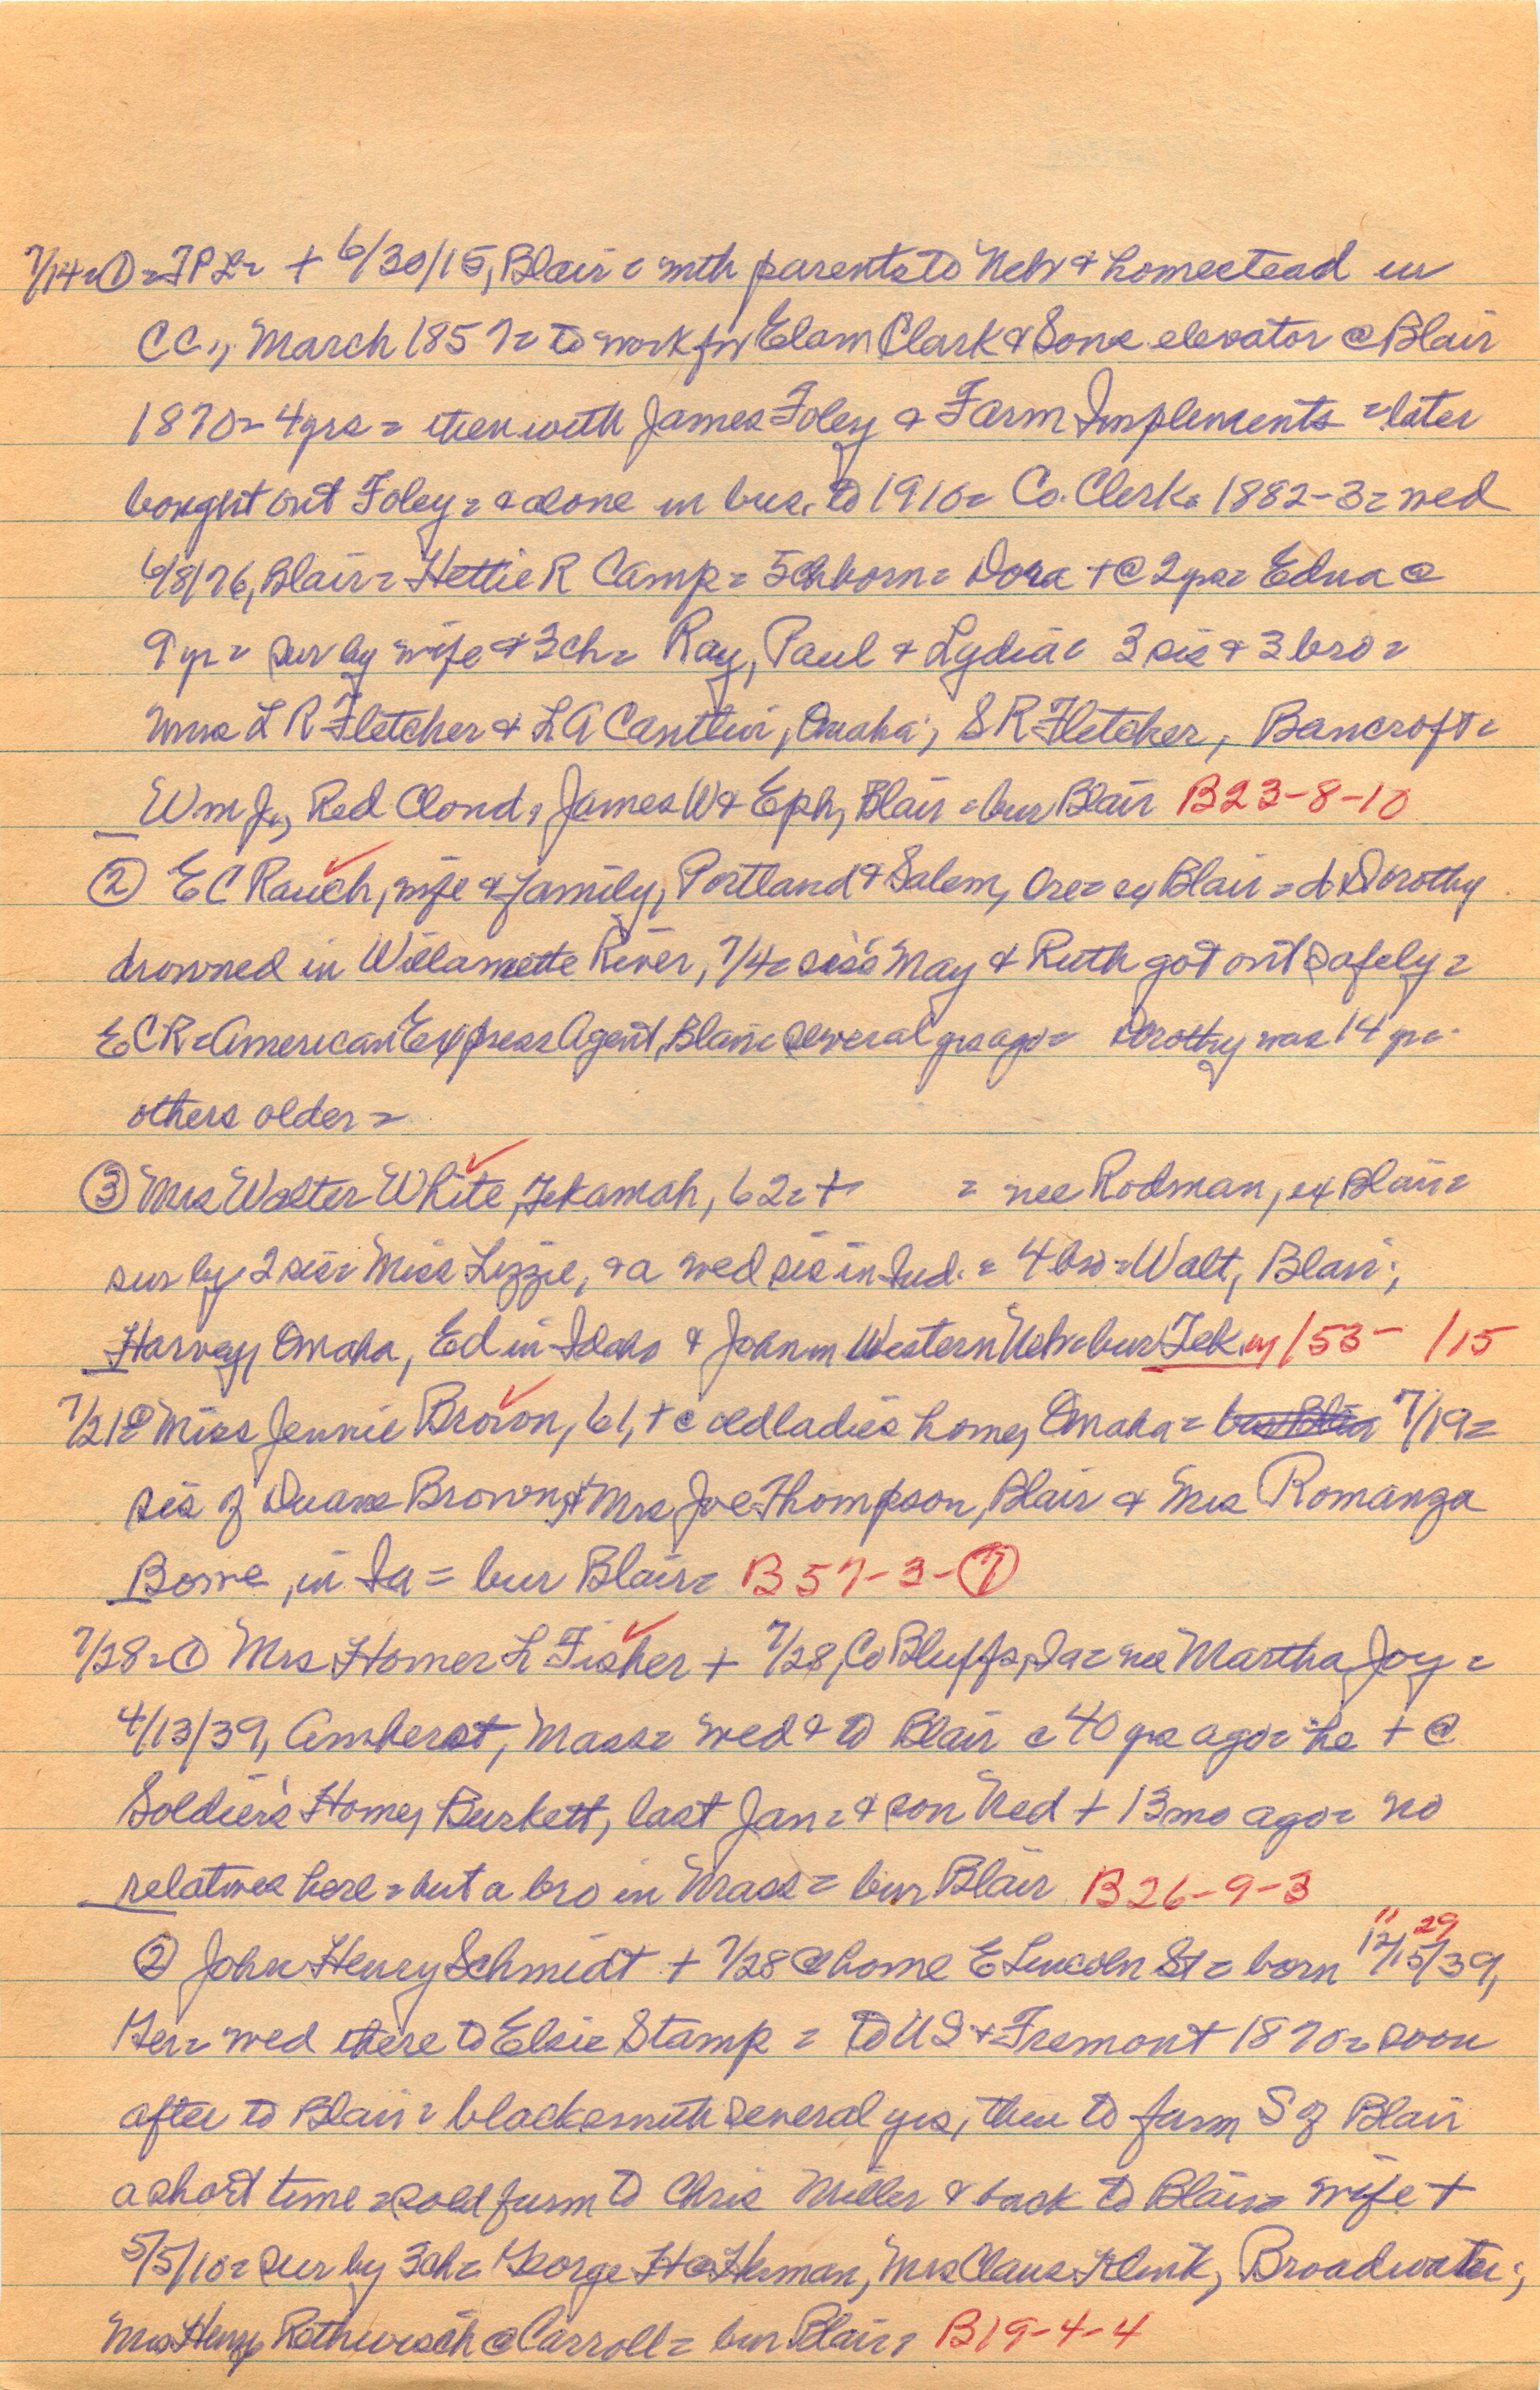 7/14=① = F P L = + 6/30/15, Blair = with parents to Neb & homestead in
C C., March 1857 = to work for Elam Clark & Sons elevator @ Blair
1870 = 4 yrs = then with James Foley & Farm Implements = later
bought out Foley = & alone in bus. to 1910 = Co. Clerk = 1882-3 = wed
6/8/76, Blair = Hettie R Camp = 5 ch born = Dora + @ 2 yrs = Edna @
9 yr = sur by wife & 3 ch = Ray, Paul & Lydia = 3 sis & 3 bro =
Mrs L R Fletcher & L A Cantlin, Omaha; S R Fletcher, Bancroft =
Wm J., Red Cloud, James W & Eph, Blair = bur Blair B23-8-10
② E C Rauch, wife & family, Portland & Salem, Ore = ex Blair = d Dorothy
drowned in Willamette River, 7/4 = sis's May & Ruth got out safely =
E C R = American Express Agent, Blair = several yrs ago = Dorothy was 14 yr =
others older =
③ Mrs Walter White, Tekamah, 62 = + = nee Rodman, ex Blair =
sur by 2 sis = Miss Lizzie, & a wed sis in Ind. = 4 bro = Walt, Blair;
Harvey, Omaha, Ed in Idaho & John in Western Neb = bur Tek. /53- /15
7/21 = Miss Jennie Brown, 61, + @ old ladies home, Omaha = bur Blair 7/19 =
sis of Duane Brown, & Mrs Joe Thompson, Blair & Mrs Romanza
Bowe, in Ia = bur Blair = B 57-3-⑦
7/28 = ① Mrs Homer L Fisher + 7/28, Co Bluffs, Ia = nee Martha Joy =
4/13/39, Amherst, Mass = wed & to Blair c 40 yrs ago = he + @
Soldier's Home, Burkett, last Jan = & son Ned + 13 mo ago = no
relatives here = but a bro in Mass = bur Blair B 26-9-3
11 29
② John Henry Schmidt + 7/28 @ home E Lincoln St = born 12/15/39,
Ger = wed there to Elsie Stamp = to U S & Fremont 1870 = soon
after to Blair = blacksmith several yrs, then to farm S of Blair
a short time = sold farm to Chris Miller & back to Blair = wife +
5/5/10 = sur by 3 ch = George H @ Herman, Mrs Claus Klink, Broadwater;
Mrs Henry Rethwisch @ Carroll = bur Blair = B19-4-4